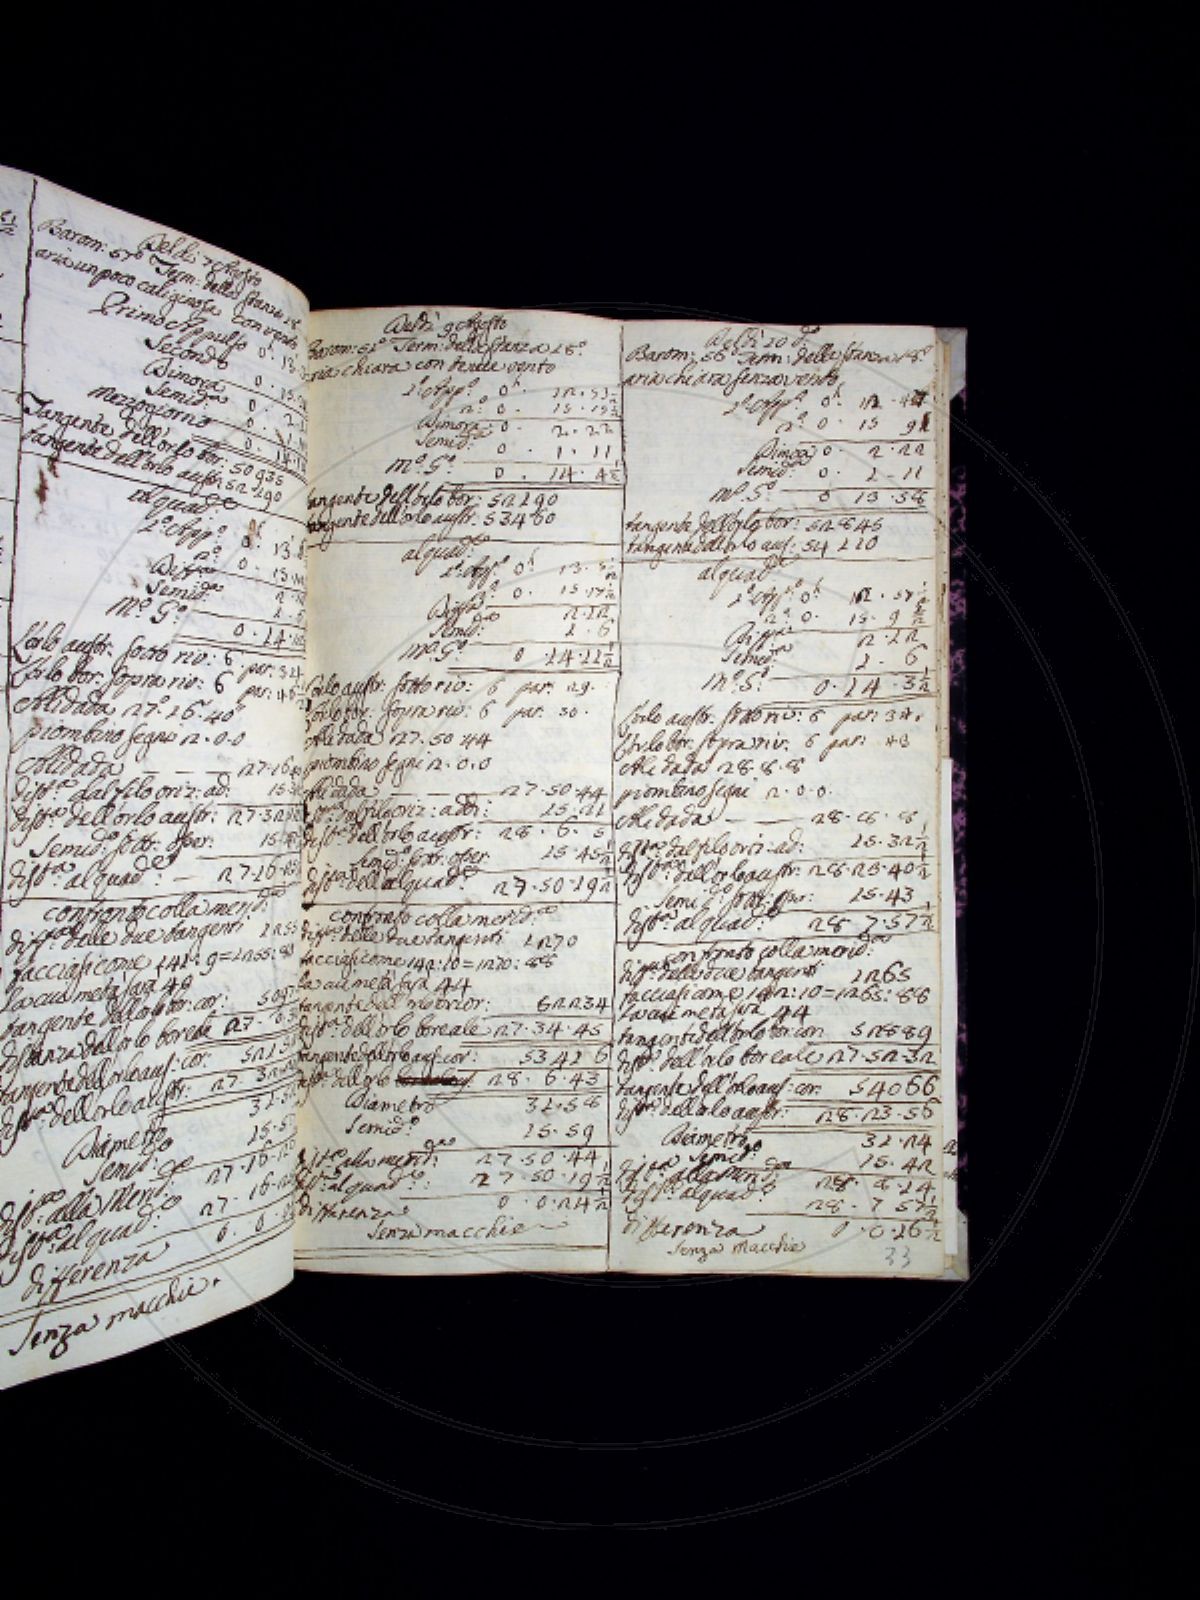 Deldi 7 Agosto
Barom: 57° Term: della stanza 18°
aria un poco caliginosa con vento
Primo Appulso 0h. 13
Secondo 0. 15
Dimora 0. 2
Semid:
mezzogiorno 0. 14
Tangente dell'orlo bor: 50935
tangente dell'orlo austr: 52190
al quad:te
1° App° 0. 13
2° 0. 15
Diff:a
Semid:
M° G° 0. 14
L'orlo austr: sotto riv: 6 par: 32
L'orlo bor: sopra riv: 6 par: 4
Alidada 27° 16. 40
piombino segni 2.0.0
Alidada 27.16
dist:a dal filo oriz: ad: 15
dist:a dell'orlo austr: 27.32
Semid: sottr: oper: 15
dist:a al quad:te 27.16
confronto colla merid:na
diff:a delle due tangenti 1255
facciasi come 141:9=1255:80
la cui metà sarà 40
tangente dell'orlo bor: cor:
distanza dell'orlo boreale 27.
tangente dell'orlo aus: cor:
dist:a dell'orlo austr: 27.32
Diametro
Semid:
dist:a alla Merid: 27.16
dist:a al quad: 27.16
differenza 0.0
Senza macchie.
Deldì 9 Agosto
Barom: 51° Term: della stanza 18°
aria chiara con tenue vento
1° App° 0h.
2° 0.
Dimora 0. 2.22
Semid: 0. 1.11
M° G° 0. 14. 4 1/2
tangente dell'orlo bor: 52190
tangente dell'orlo austr: 53460
al quad:te
1° App° 0h 13.
2° 0. 15.
Diff:a 2.12
Semid: 1.6
M° G° 0 14.11 1/2
L'orlo austr: sotto riv: 6 par: 29.
L'orlo bor: sopra riv: 6 par: 30.
Alidada 27.50 44
piombino segni 2.0.0
Alidada 27.50.44
dist:a dal filo oriz: addi: 15.21
dist:a dell'orlo austr: 28.6.5
Semid: sottr: oper: 15.45 1/2
dist:a dell al quad:te 27.50.19 1/2
confronto colla merid:na
diff:a delle due tangenti 1270
facciasi come 142:10=1270:88
la cui metà sarà 44
tangente dell'orlo bor: cor: 52234
dist:a dell'orlo boreale 27.34.45
tangente dell'orlo aus: cor: 53416
dist:a dell'orlo 28.6.43
Diametro 31.58
Semid: 15.59
dist:a alla merid:na 27.50.44
dist:a al quad:te 27.50.19 1/2
differenza 0 0.24 1/2
Senza macchie
Deldì 10 d°
Barom: 56° Term: della stanza 18°
aria chiara senza vento
1° App° 0h 12.47
2° 0. 15 9
Dimora 0. 2.22
Semid: 0 1.11
M° G° 0 13.58
tangente dell'orlo bor: 52845
tangente dell'orlo aus: 54110
al quad:te
1° App° 0h 12.57 1/2
2° 0. 15.9 1/2
Diff:a 2.12
Semid: 1.6
M° G° 0.14.3 1/2
L'orlo austr: sotto riv: 6 par: 37.
L'orlo bor: sopra riv: 6 par: 43
Alidada 28.8.8
piombino segni 2.0.0.
Alidada 28.8.8
dist:a dal filo oriz: ad: 15.32 1/2
dist:a dell'orlo austr: 28.23.40 1/2
Semid: sottr: oper: 15.43
dist:a al quad:te 28 7.57 1/2
confronto colla merid:na
diff:a delle due tangenti 1265
facciasi come 142:10=1265:88
la cui metà sarà 44
tangente dell'orlo bor: cor: 52889
dist:a dell'orlo boreale 27.52.32
tangente dell'orlo aus: cor: 54066
dist:a dell'orlo austr: 28.23.56
Diametro 31.24
Semid: 15.42
dist:a alla merid:na 28.8.14
dist:a al quad:te 28.7 57 1/2
differenza 0.0.16 1/2
Senza macchie
33